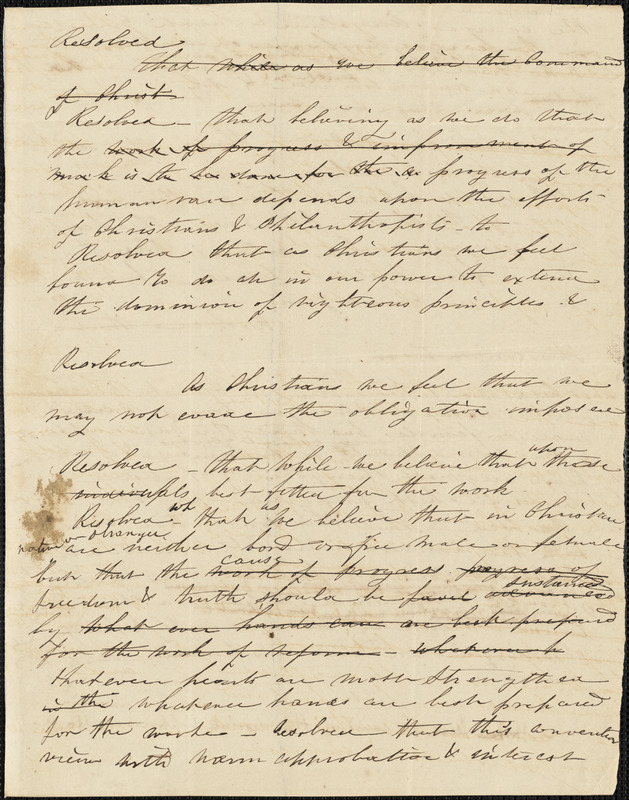 Resolved
that while as we believe the Command
of Christ
Resolved - that believing as we do that
the work of progress & improvement of
is to be done for the progress of the
human race depends upon the efforts
of Christians & Philanthropists - to
Resolved that as Christians we feel
bound to do all in our power to extend
the dominion of righteous principles &
Resolved
As Christians we feel that we
may not evade the obligation imposed
upon
Resolved - that while we believe that those
individuals best fitted for the work
wh as
Resolved - that we believe that in Christ
native or stranger
are neither bond or free male or female
cause
but that the work of progress progress of
sustained
freedom & truth should be advanced
by what ever hands are best prepared
for the work of reform - whatever h
that ever hearts are most strengthed
in the whatever hands are best prepared
for the work - Resolved that this convention
view with warm approbation & interest